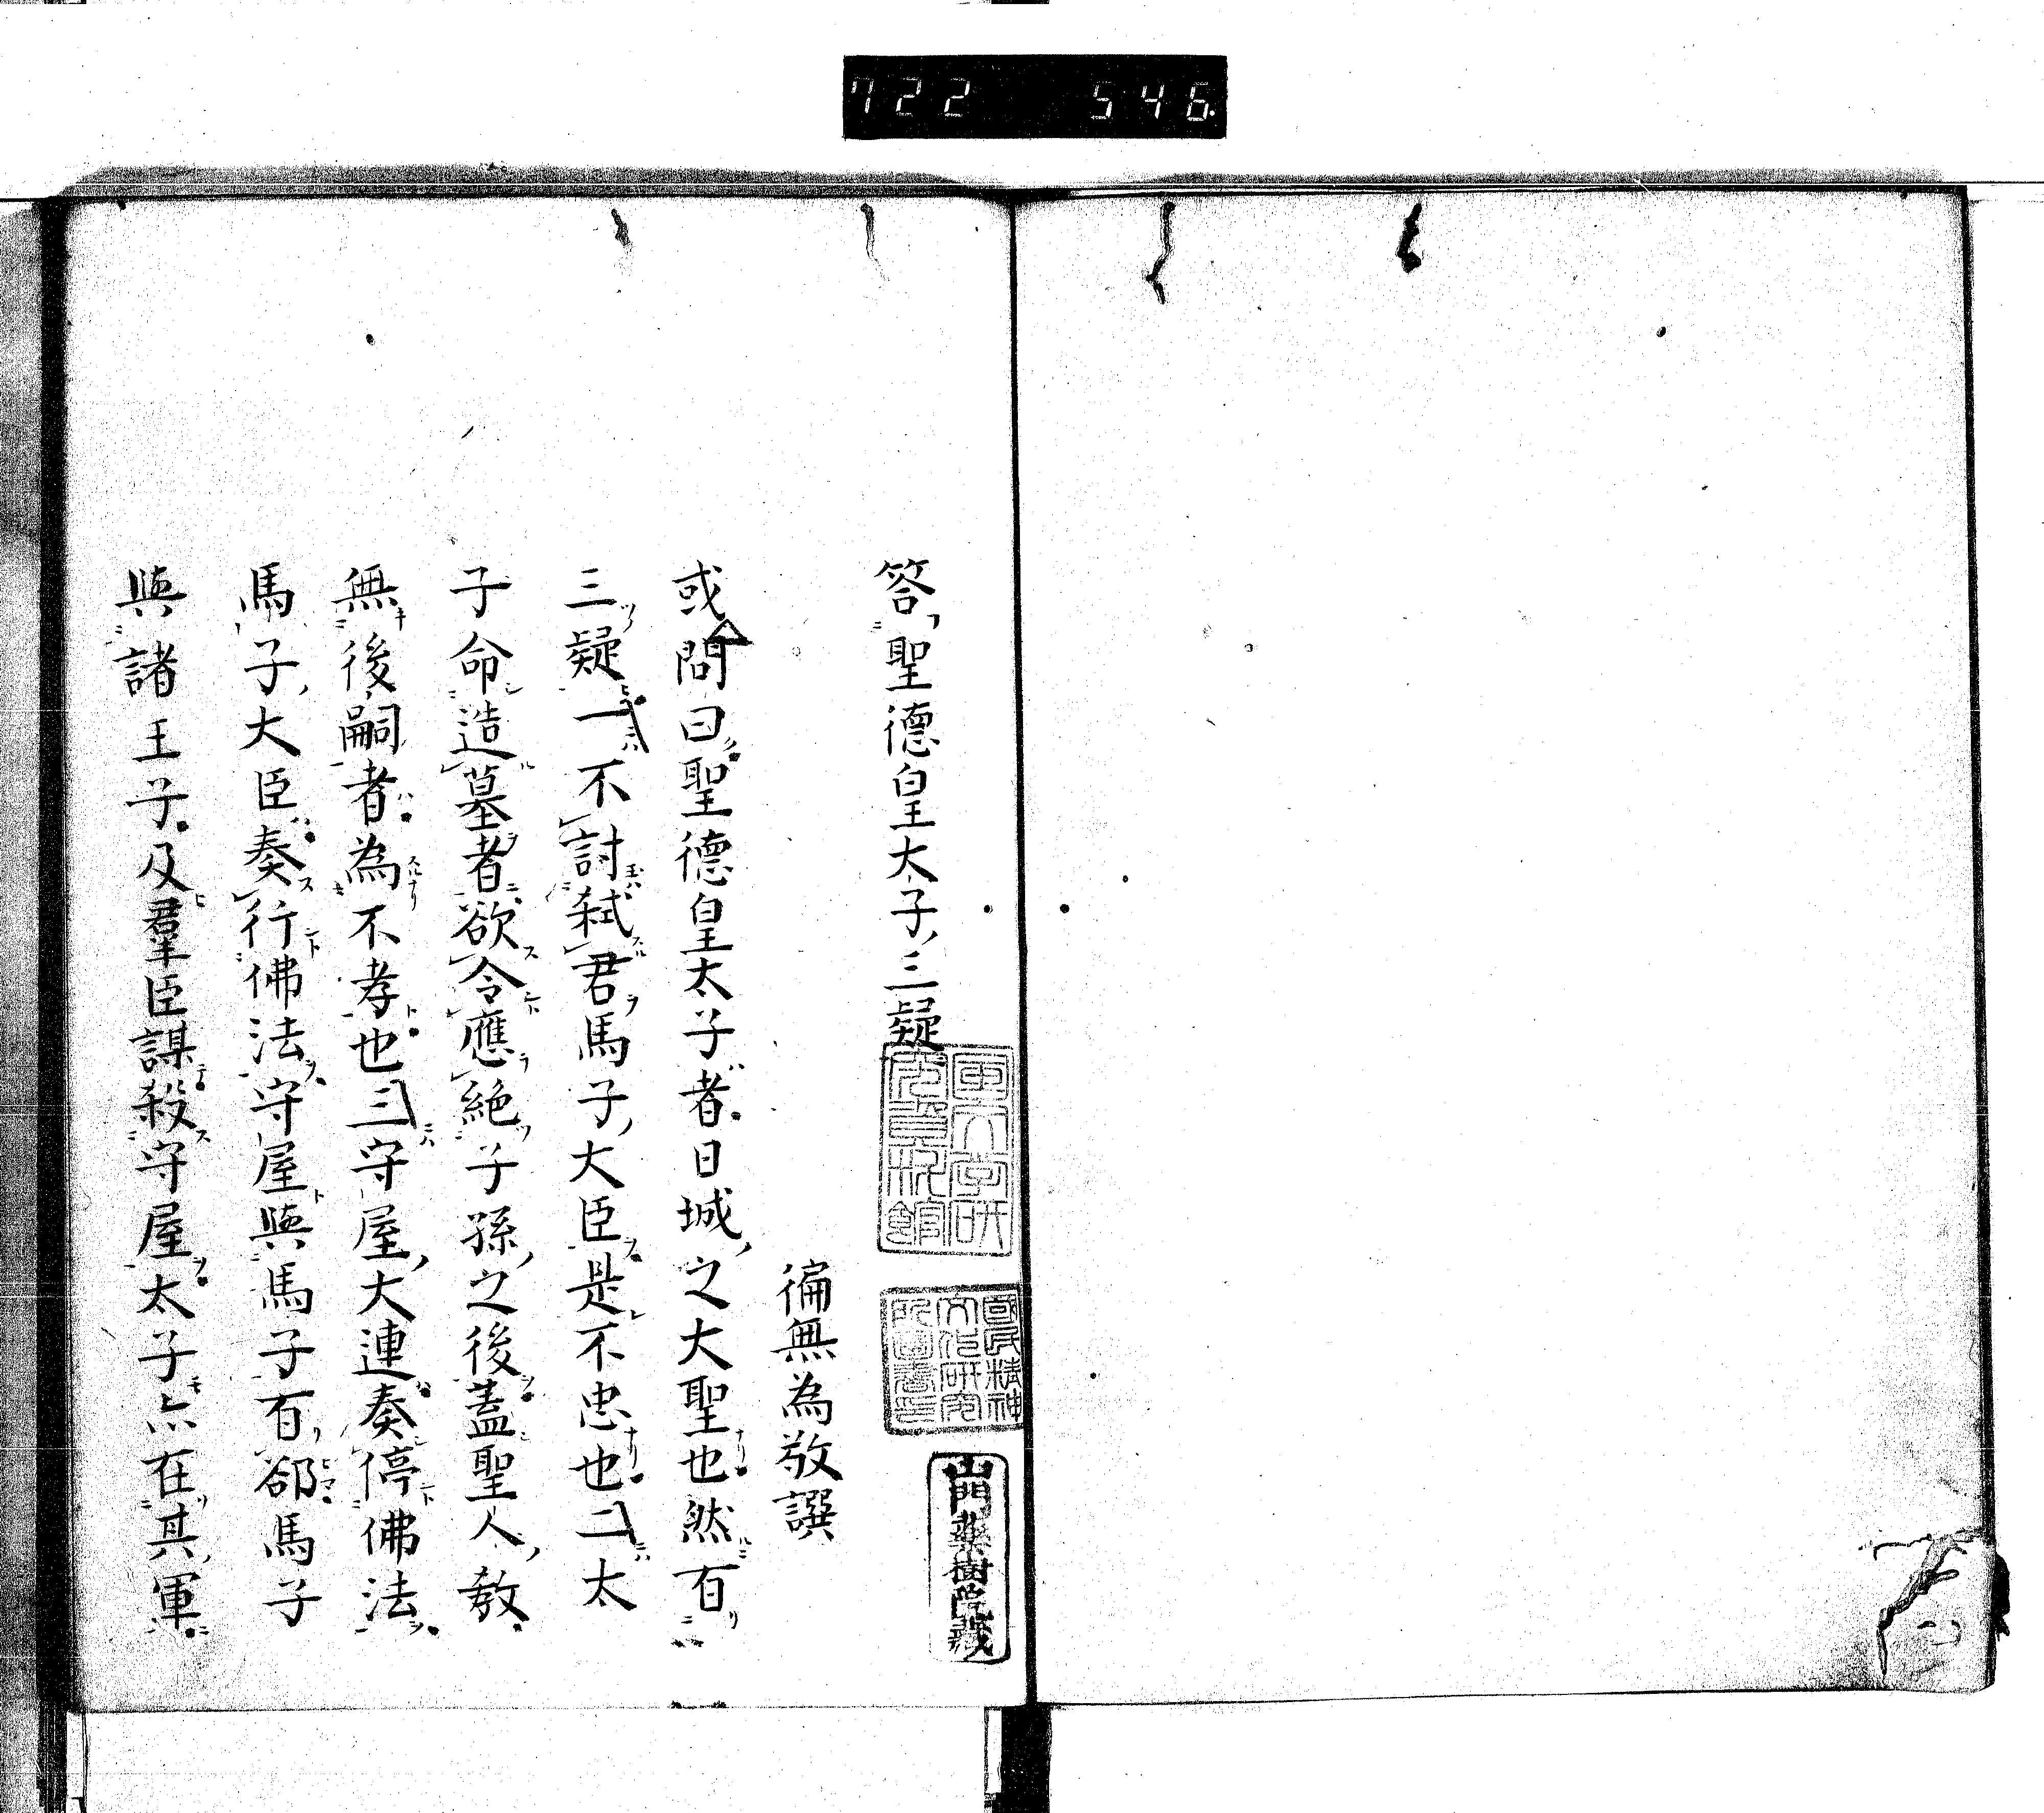 722 546
答聖德皇太子三疑
徧無為敬譔
或問曰聖德皇太子者日城之大聖也然有
三疑一不討弒君馬子大臣是不忠也二太
子命造墓者欲令應絕子孫之後蓋聖人教
無後嗣者為不孝也三守屋大連奏停佛法
馬子大臣奏行佛法守屋與馬子有郤馬子
與諸王子及羣臣謀殺守屋太子亦在其軍
國民精神
文化研究
所圖書印
山門藥樹院藏